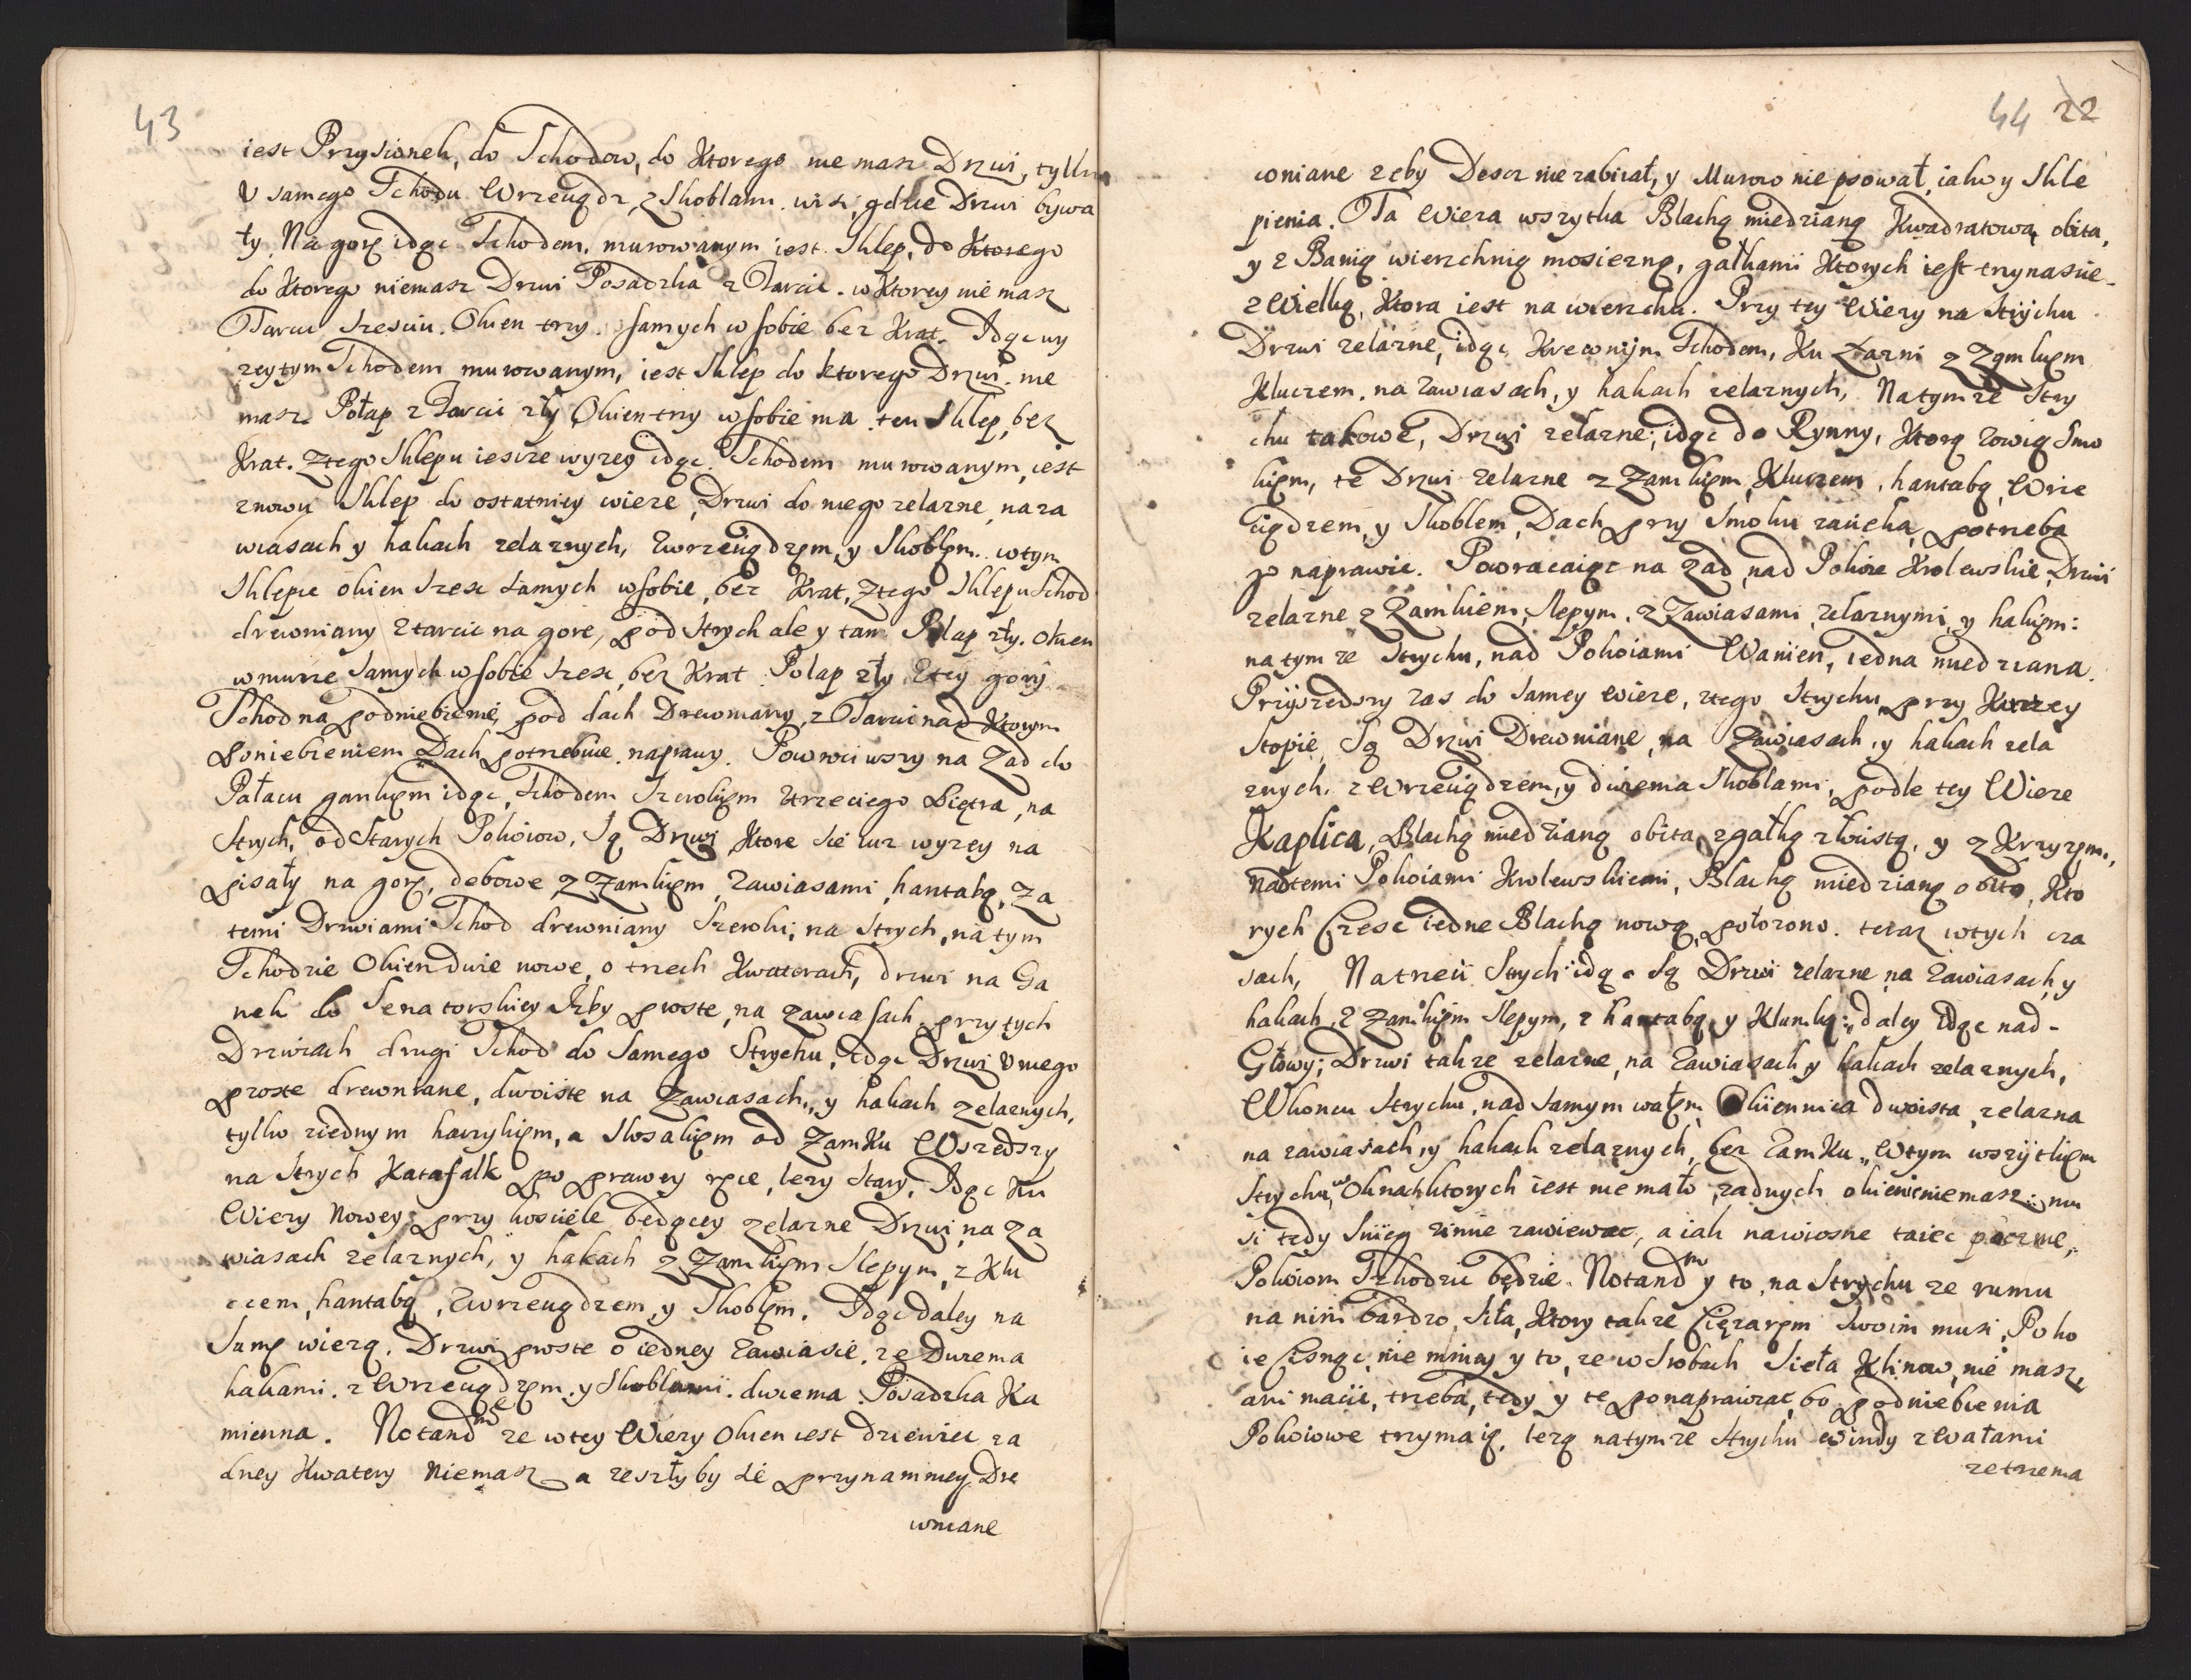 43
iest Przysionek, do Schodow, do Ktorego nie masz Drzwi, tylko
U samego Schodu Wrzeuądz, z Skoblami wisi, gdzie Drzwi bywa
ły. Na gorę idąc Schodem, murowanym iest Sklep, do Ktorego
do Ktorego niemasz Drzwi Posadzka z Tarcic. w Ktorey nie masz
Tarcic szesciu. Okien trzy. samych w sobie bez Krat. Idąc wy
zey tym Schodem murowanym, iest Sklep do ktorego Drzwi nie
masz. Połap z Tarcic zły Okien trzy w sobie ma ten Sklep, bez
Krat. Z tego Sklepu iescze wyzey idąc. Schodem murowanym, iest
znowu Sklep do ostatniey wieze, Drzwi do niego zelazne, na za
wiasach y hakach zelaznych, z wrzeuądzem, y Skoblem. w tym
Sklepie okien szesc samych w sobie, bez Krat, z tego Sklepu Schod
drewniany z tarcic na gore, pod strych ale y tam Połap zły. Okien
w murze samych w sobie szesc, bez Krat Połap zły z tey gory
Schod na podniebienie, pod dach Drewniany, z Tarcic nad Ktorym
poniebieniem Dach potrebuie naprawy. Powrociwszy na zad do
Pałacu gankiem idąc, Schodem Szerokiem z trzeciego Piętra, na
Strych, od Starych Pokoiow, są Drzwi, Ktore sie iuz wyzey na
pisały na gorę, debowe z zamkiem, zawiasami, hantabą, za
temi Drzwiami Schod drewniany Szeroki, na Strych, na tym
Schodzie Okien dwie nowe, o trzech Kwaterach, drzwi na Ga
nek do Senatorskiey Izby proste, na zawiasach przy tych
Drzwiach drugi Schod do samego Strychu, idąc Drzwi u niego
proste drewniane, dwoiste na zawiasach, y hakach zelaznych,
tylko z iednym haczykiem, a Slosakiem od zamku Wszedszy
na Strych Katafalk po prawey ręce, lezy stary. Idąc ku
Wiezy Nowey, przy kosciele będącey zelazne Drzwi, na za
wiasach zelaznych, y hakach z zamkiem slepym, z Klu
czem, hantabą, z wrzeuądzem, y Skoblem. Idąc daley na
samę wiezą. Drzwi proste o iedney zawiasie, ze Dwiema
hakami, z Wrzeuądzem, y Skoblami dwiema. Posadzka Ka
mienna. Notandm ze w tey Wiezy Okien iest dziewiec za
dney Kwatery niemasz a zeszły by sie przynamniey Dre
wniane
44 22
wniane zeby Descz nie zabiiał, y Murow nie psował, iako y Skle
pienia. Ta Wieza wszytka Blachą miedzianą Kwadratową obita,
y z Banią wierzchnią mosiezną, gałkami Ktorych iest trzynascie
z Wielką, Ktora iest na wierzchu. Przy tey Wiezy na Strychu
Drzwi zelazne, idąc Kreconym Schodem, Ku Zarni z Zamkiem
Kluczem, na zawiasach, y hakach zelaznych, Na tym ze Stry
chu takowe, Drzwi zelazne, idąc do Rynny, Ktorą zowią Smo
kiem, te Drzwi zelazne z Zamkiem, Kluczem, hantabą, Wrze
ciądzem, y Skoblem, Dach przy Smoku zacieka, potrzeba
go naprawic. Powracaiąc na zad, nad Pokoie Krolewskie, Drzwi
zelazne z Zamkiem, slepym, z Zawiasami zelaznymi, y hakiem:
na tym ze Strychu, nad Pokoiami Wanien, iedna miedziana.
Przyszedszy zas do samey Wieze, z tego Strychu, przy Kurzey
Stopie, są Drzwi Drewniane, na Zawiasach, y hakach zela
znych, z Wrzeuądzem, y dwiema Skoblami, podle tey Wieze
Kaplica, Blachą miedzianą obita, z gałką złoistą, y z Krzyzem,
nad temi Pokoiami Krolewskiemi, Blachą miedzianą obito, Kto
rych Czesc iedne Blachą nową, połozono. teraz w tych cza
sach, Na trzeci Strych idąc są Drzwi zelazne, na zawiasach, y
hakach, z zamkiem slepym, z hantabą, y Klamką: daley idąc nad
Głowy; Drzwi takze zelazne, na zawiasach y hakach zelaznych,
W koncu Strychu, nad samym wałem Okiennica dwoista, zelazna
na zawiasach, y hakach zelaznych, bez zamku, w tym wszytkiem
Strychu, w Oknach ktorych iest nie mało, zadnych okienic niemasz, mu
si tedy snieg zimie zawiewac, a iak na wiosne taiec pocznie,
Pokoiom Szkodzic będzie. Notandm y to, na Strychu ze rumu
na nim bardzo, siła, Ktory takze Cięzarem swoim musi, Poko
ie Cisnąc, nie mniey y to, ze w Srobach sieła Klinow, nie masz,
ani macic, trzeba, tedy y te ponaprawiac, bo podniebienia
Pokoiowe trzymaią, lezą na tymze Strychu windy z Wałami
ze trzema